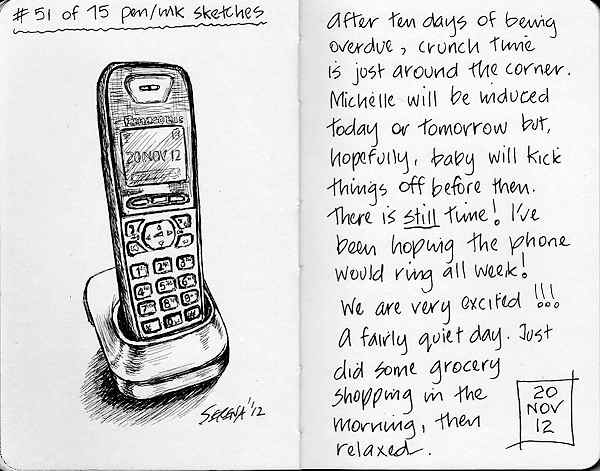 #51 of 75 pen/ink sketches
Panasonic
20 NOV 12
SERENA '12
After ten days of being
overdue, crunch time
is just around the corner.
Michelle will be induced
today or tomorrow but,
hopefully, baby will kick
things off before then.
There is still time! I've
been hoping the phone
would ring all week!
We are very excited!!!
A fairly quiet day. Just
did some grocery
shopping in the
morning, then
relaxed.
20
NOV
12